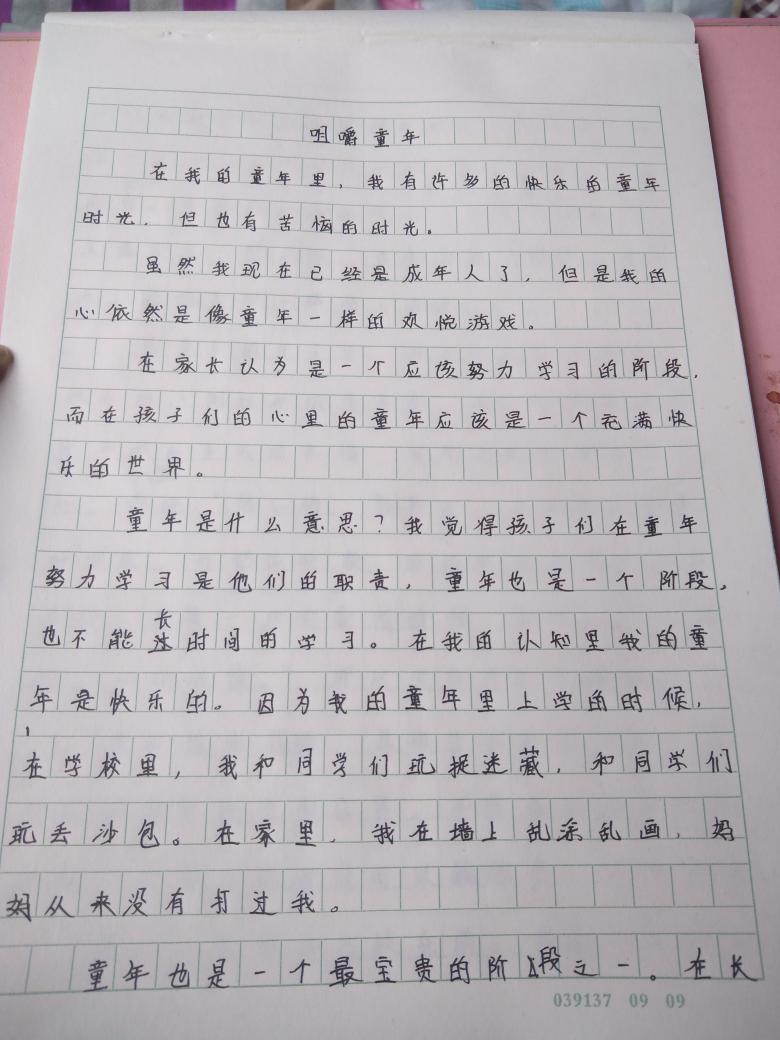 咀嚼童年
在我的童年里，我有许多的快乐的童年
时光，但也有苦恼的时光。
虽然我现在已经是成年人了，但是我的
心依然是像童年一样的欢悦游戏。
在家长认为是一个应该努力学习的阶段，
而在孩子们的心里的童年应该是一个充满快
乐的世界。
童年是什么意思？我觉得孩子们在童年
努力学习是他们的职责，童年也是一个阶段，
也不能长时间的学习。在我的认知里我的童
年是快乐的。因为我的童年里上学的时候，
在学校里，我和同学们玩捉迷藏，和同学们
玩丢沙包。在家里，我在墙上乱涂乱画，妈
妈从来没有打过我。
童年也是一个最宝贵的阶段之一。在长
039137 09 09